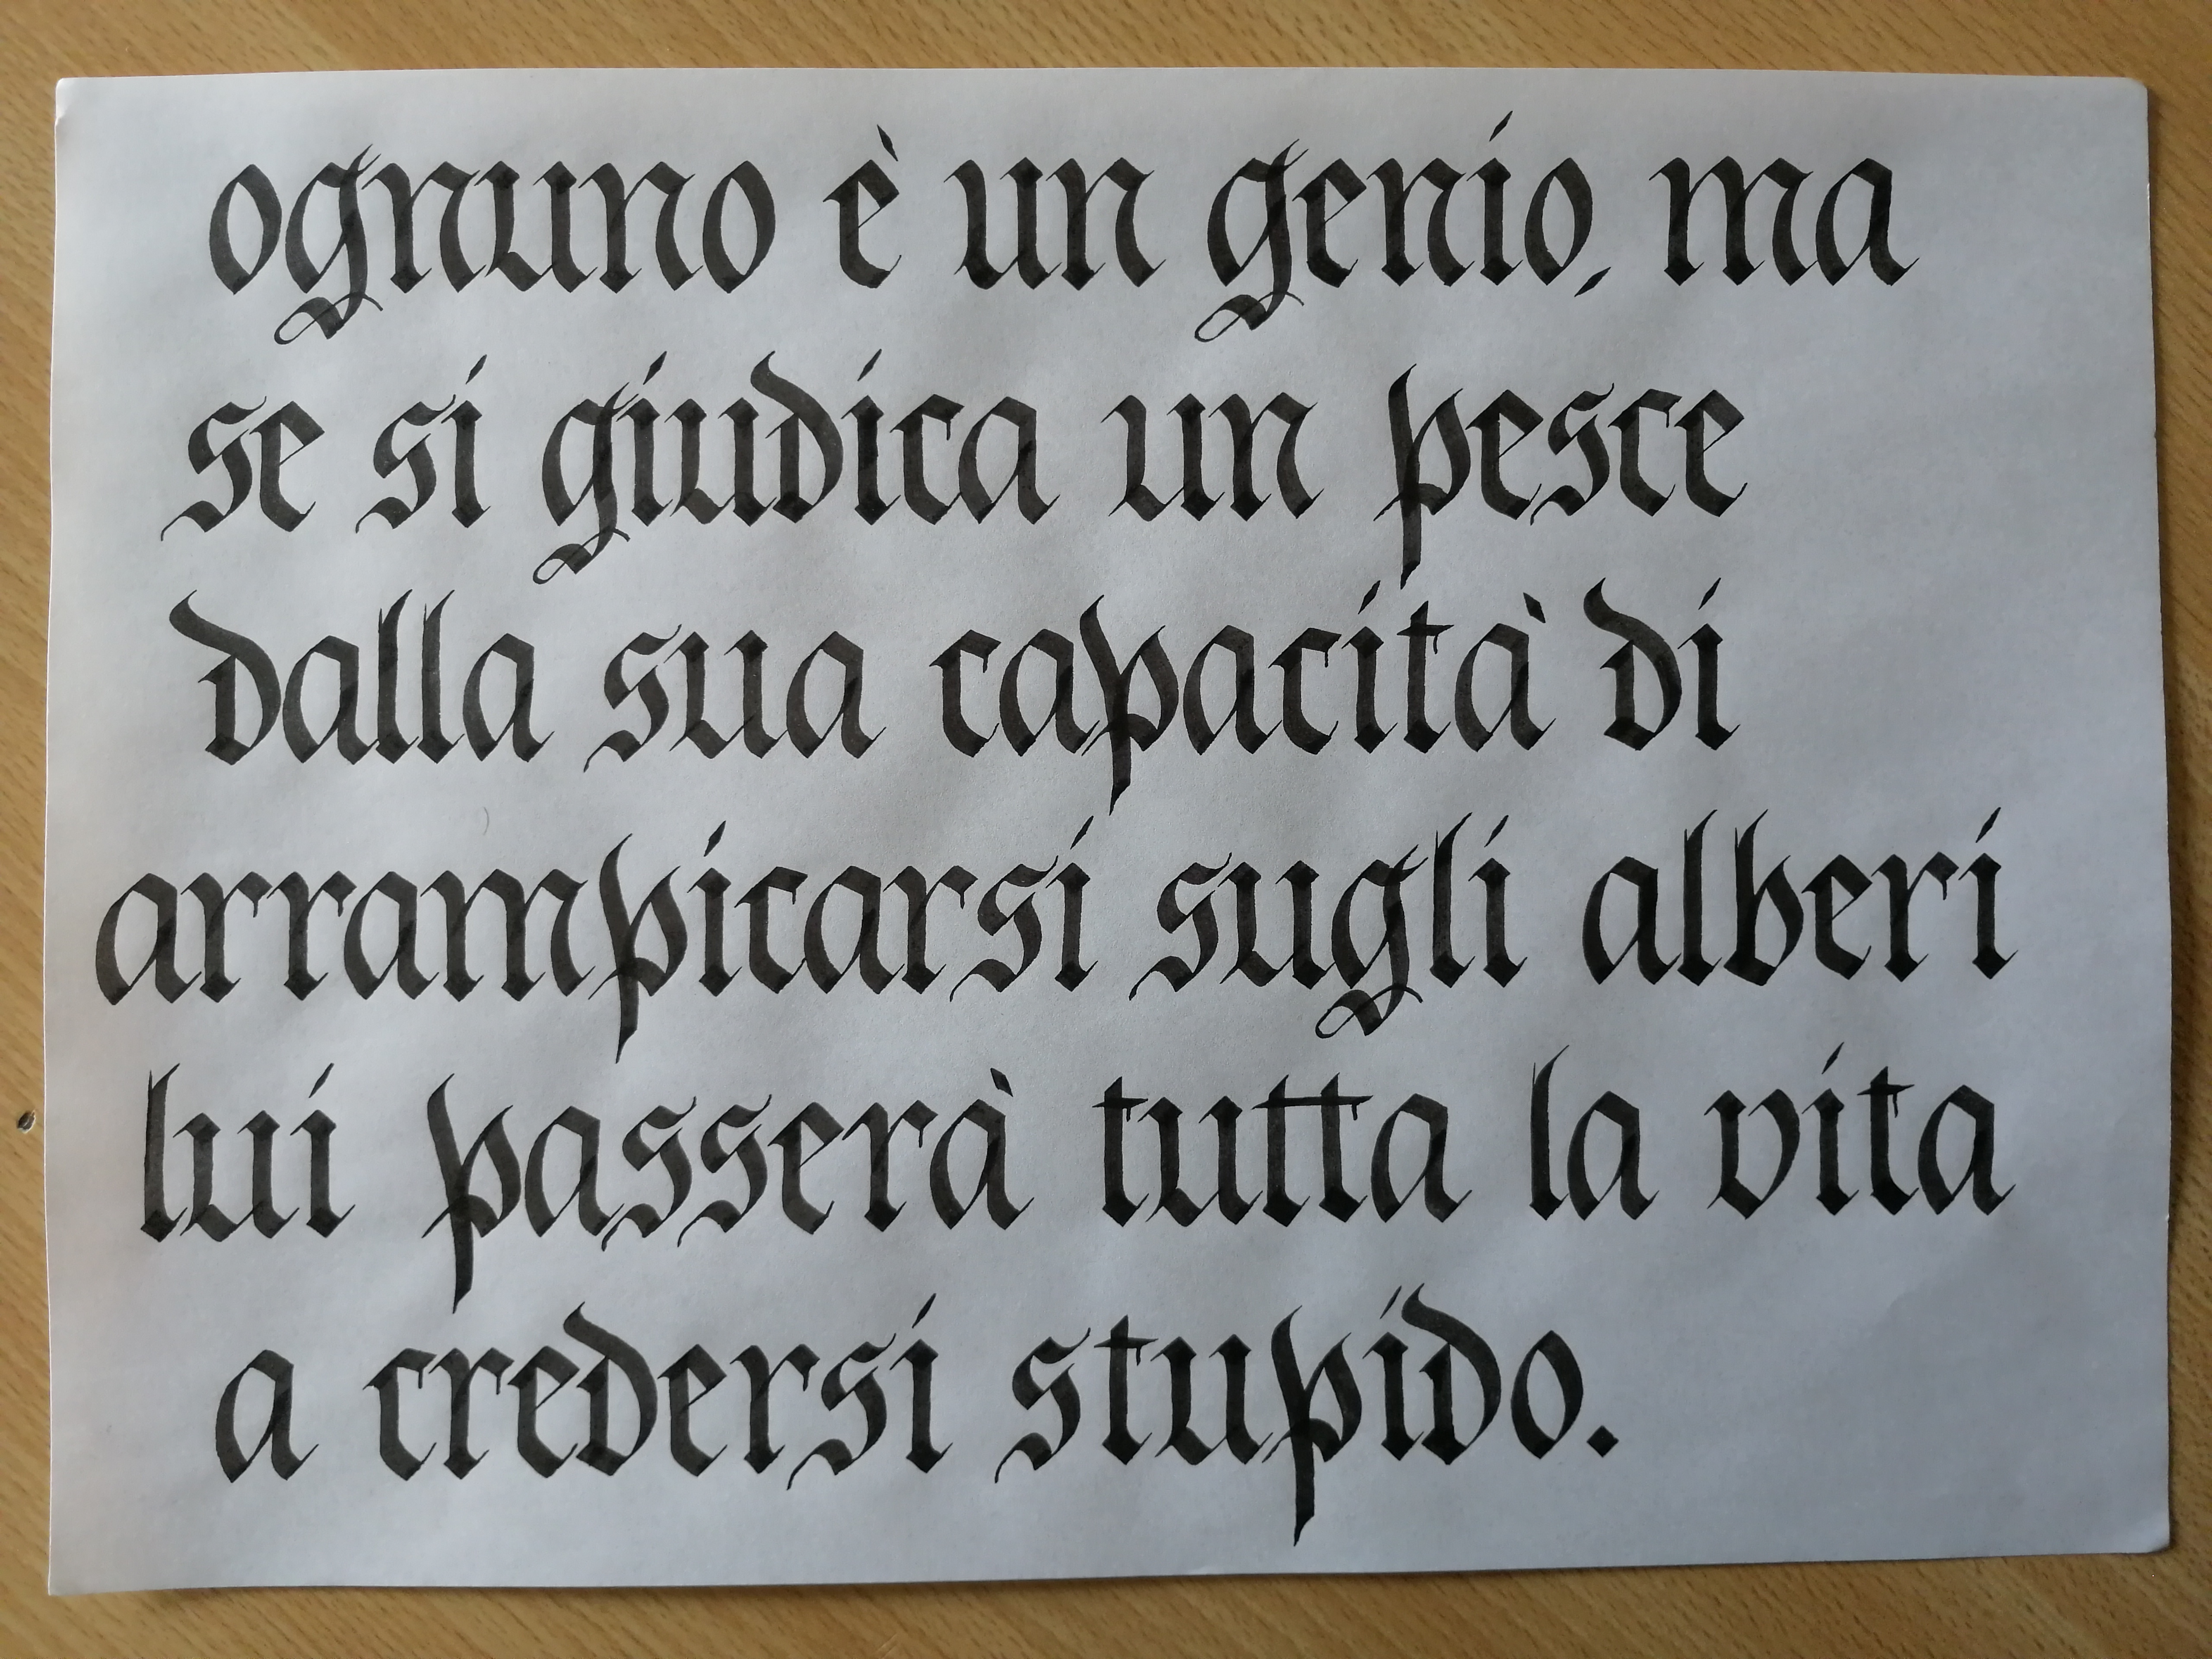 ognuno è un genio, ma
se si giudica un pesce
dalla sua capacità di
arrampicarsi sugli alberi
lui passerà tutta la vita
a credersi stupido.